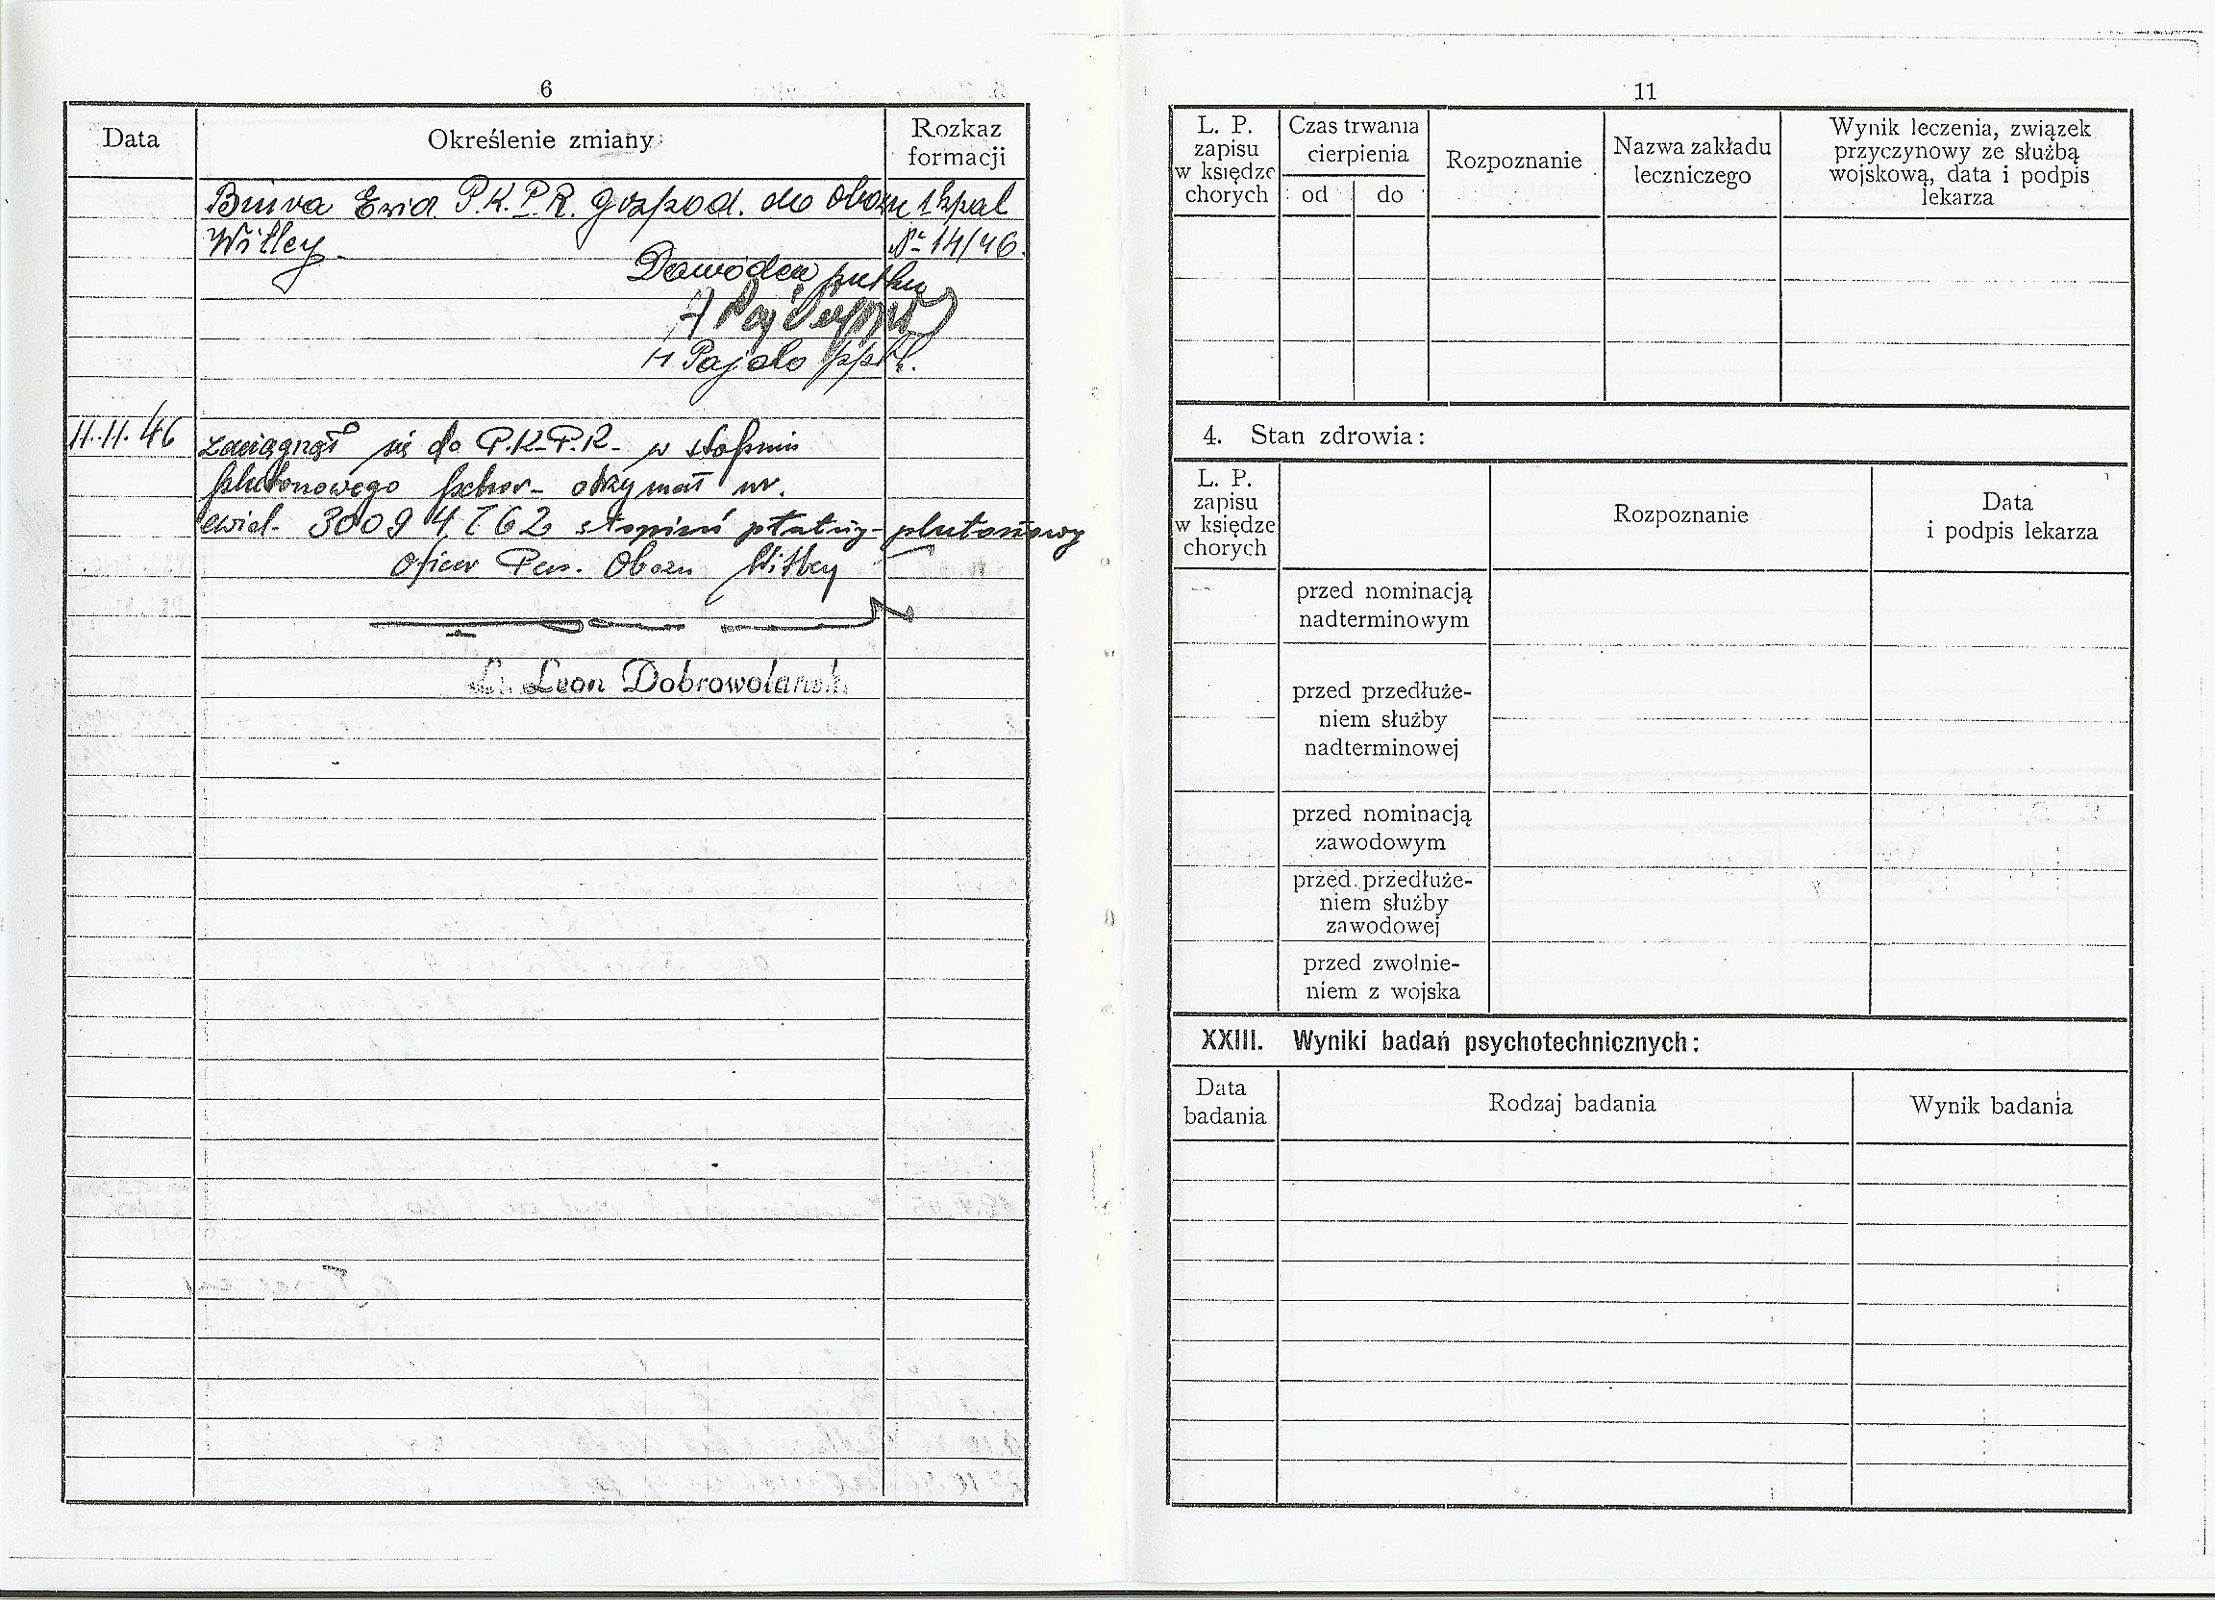 6
Data
Określenie zmiany
Rozkaz
formacji
Biura Ewid. P.K.P.R. gospod. do Obozu 1 hpal
Witley. Nr 14/46.
Dowódca pułku
H Pajdo ppłk.
11.11.46 zaciągnął się do P.K.P.R. w stopniu
plutonowego pchor. otrzymał nr.
ewid. 30094762 stopień płatny - plutonowy
Oficer Pers. Obozu Witley
Lt. Leon Dobrowolanski
11
L. P.
zapisu
w księdze
chorych
Czas trwania
cierpienia
od
do
Rozpoznanie
Nazwa zakładu
leczniczego
Wynik leczenia, związek
przyczynowy ze służbą
wojskową, data i podpis
lekarza
4. Stan zdrowia:
L. P.
zapisu
w księdze
chorych
Rozpoznanie
Data
i podpis lekarza
przed nominacją
nadterminowym
przed przedłuże-
niem służby
nadterminowej
przed nominacją
zawodowym
przed przedłuże-
niem służby
zawodowej
przed zwolnie-
niem z wojska
XXIII. Wyniki badań psychotechnicznych:
Data
badania
Rodzaj badania
Wynik badania